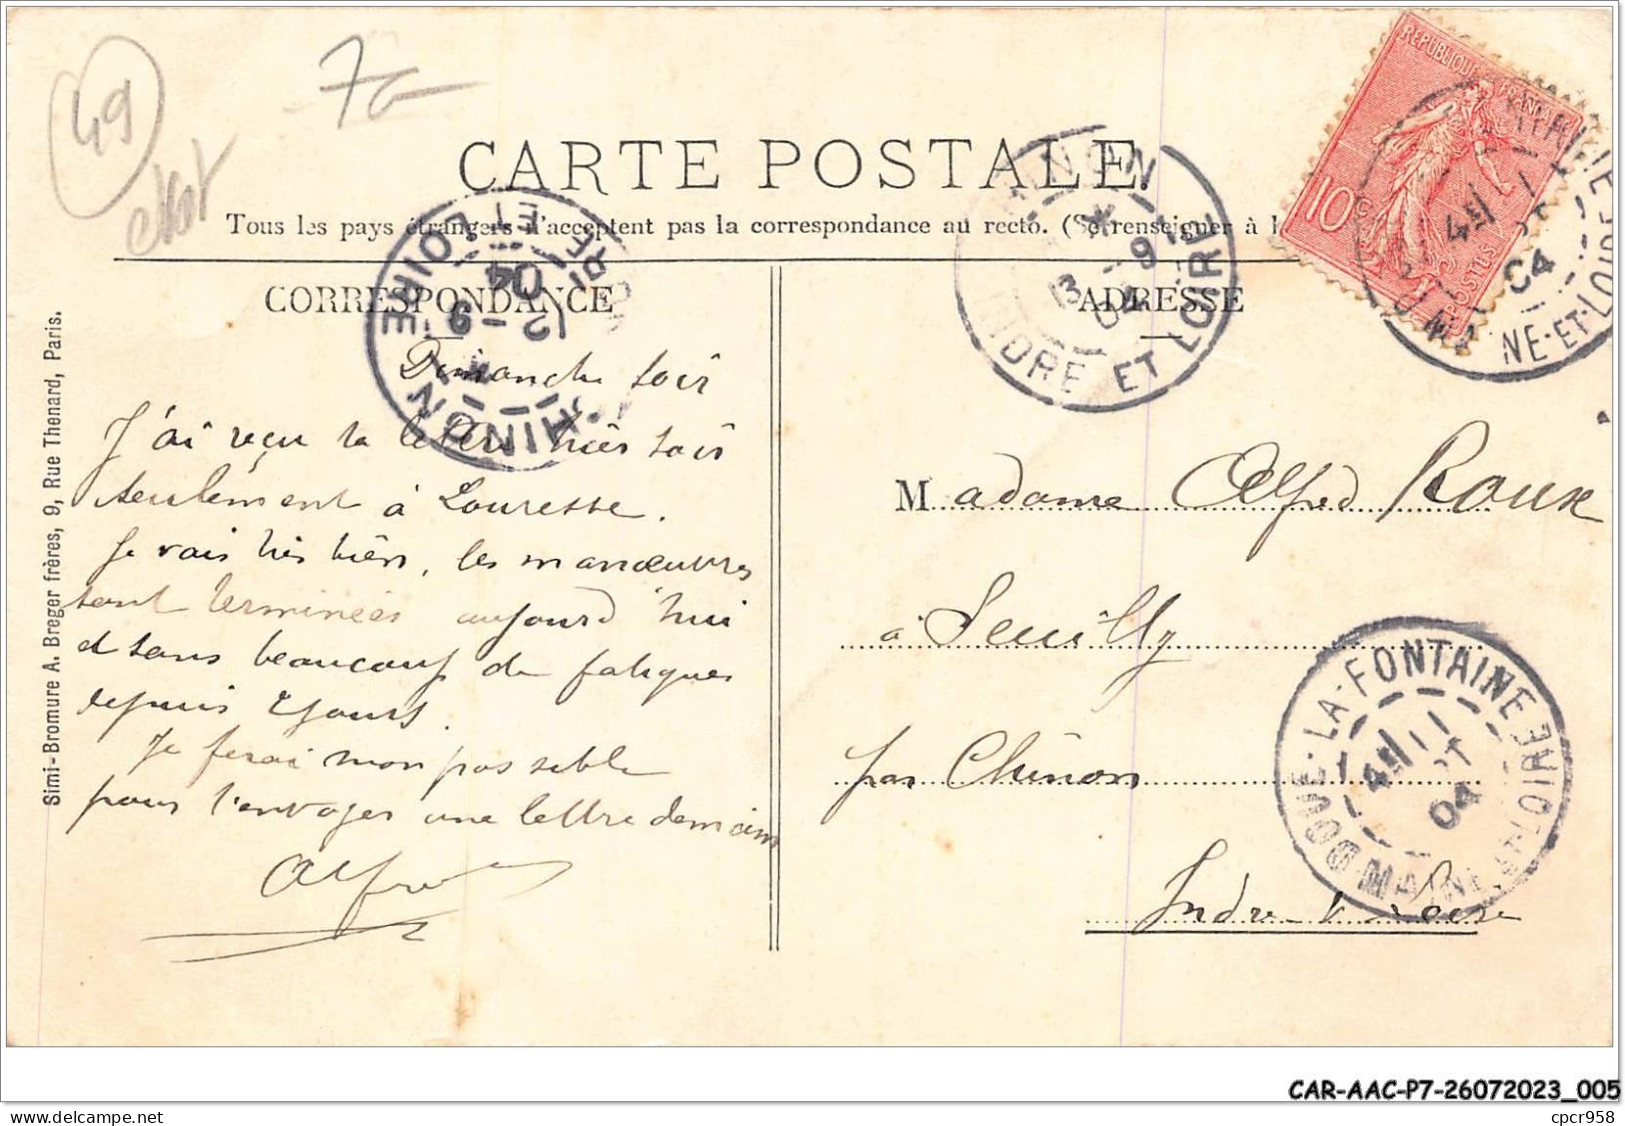 49
7
CARTE POSTALE
Tous les pays étrangers n'acceptent pas la correspondance au recto. (Se renseigner à l
CORRESPONDANCE
ADRESSE
Simi-Bromure A. Breger frères, 9, Rue Thenard, Paris.
Dimanche soir
J'ai reçu ta lettre hier soir
seulement à Louresse.
Je vais très bien, les manœuvres
sont terminées aujourd'hui
et sans beaucoup de fatigues
depuis 2 jours.
Je ferai mon possible
pour t'envoyer une lettre demain
Alfred
Madame Alfred Roux
à Seuilly
par Chinon
Indre & Loire
REPUBLIQUE FRANÇAISE
10 c
POSTES
CHINON
INDRE ET LOIRE
13 -9 04
CHINON
ET LOIRE
12 -9 04
MAINE-ET-LOIRE
04
DOUÉ-LA-FONTAINE
MAINE-ET-LOIRE
11
04
CAR-AAC-P7-26072023_005
www.delcampe.net
cpcr958